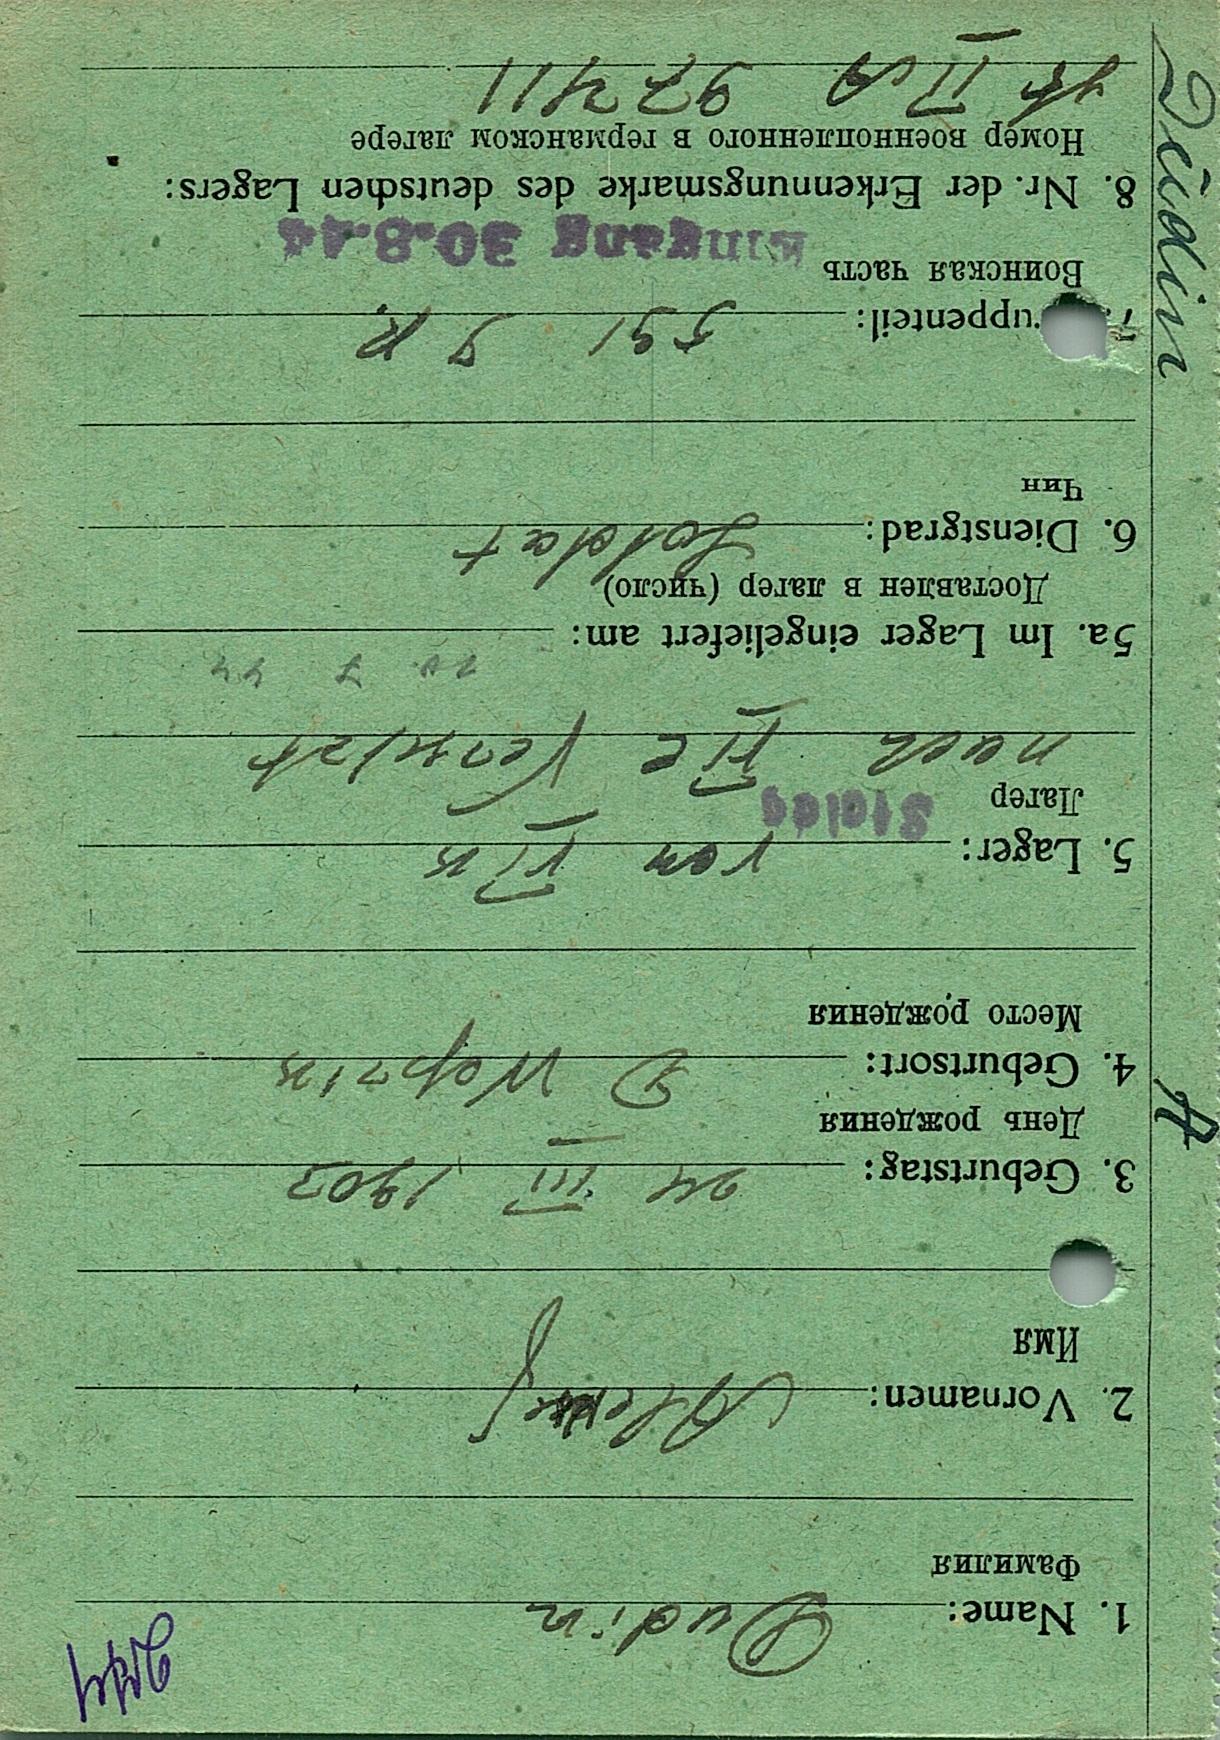 1. Name: Dudin
Фамилия
2. Vornamen: Aleksej
Имя
3. Geburtstag: 24 III 1903
День рождения
4. Geburtsort: D
Место рождения
5. Lager: von
Лагер
Stalag
nach II C Versetzt
5a. Im Lager eingeliefert am:
Доставлен в лагер (число)
6. Dienstgrad: Soldat
Чин
7. uppenteil: 591
Воинская часть
Eingang 30.8.44
8. Nr. der Erkennungsmarke des deutschen Lagers:
Номер военнопленного в германском лагере
II A 97411
Dudin
A